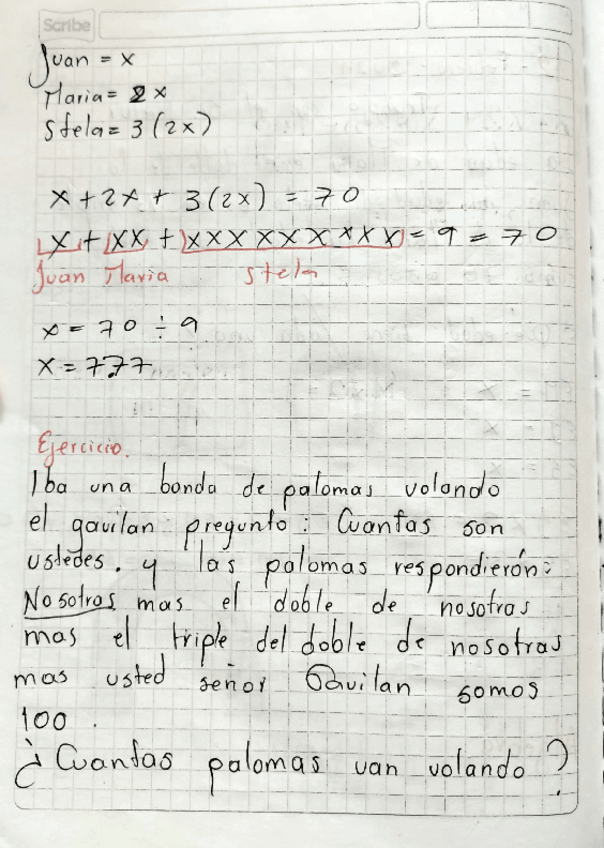 Scribe
Juan = x
Maria = 2x
Stela = 3(2x)
x + 2x + 3(2x) = 70
x + xx + xxxxxxxxxx = 9 = 70
Juan Maria Stela
x = 70 ÷ 9
x = 7.77
Ejercicio.
Iba una banda de palomas volando
el gavilan pregunto: Cuantas son
ustedes. y las palomas respondierón:
Nosotros mas el doble de nosotras
mas el triple del doble de nosotras
mas usted señor Gavilan somos
100.
¿Cuantas palomas van volando?